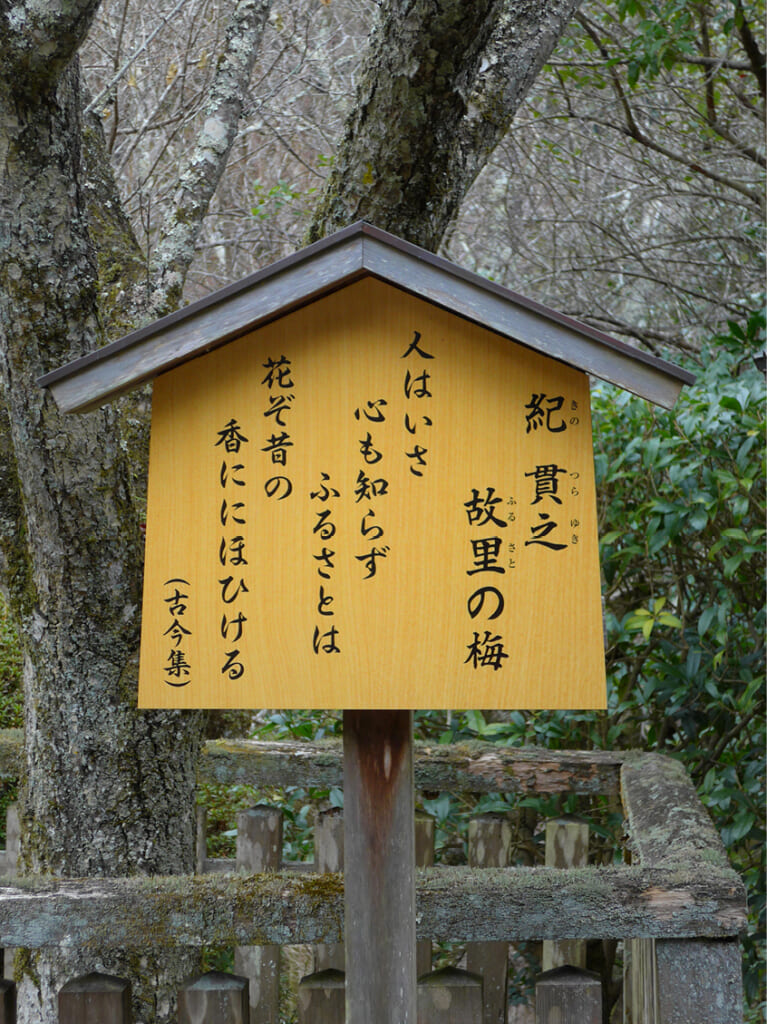 紀 貫之
きの つら ゆき
故里の梅
ふる さと
人はいさ
心も知らず
ふるさとは
花ぞ昔の
香ににほひける
(古今集)